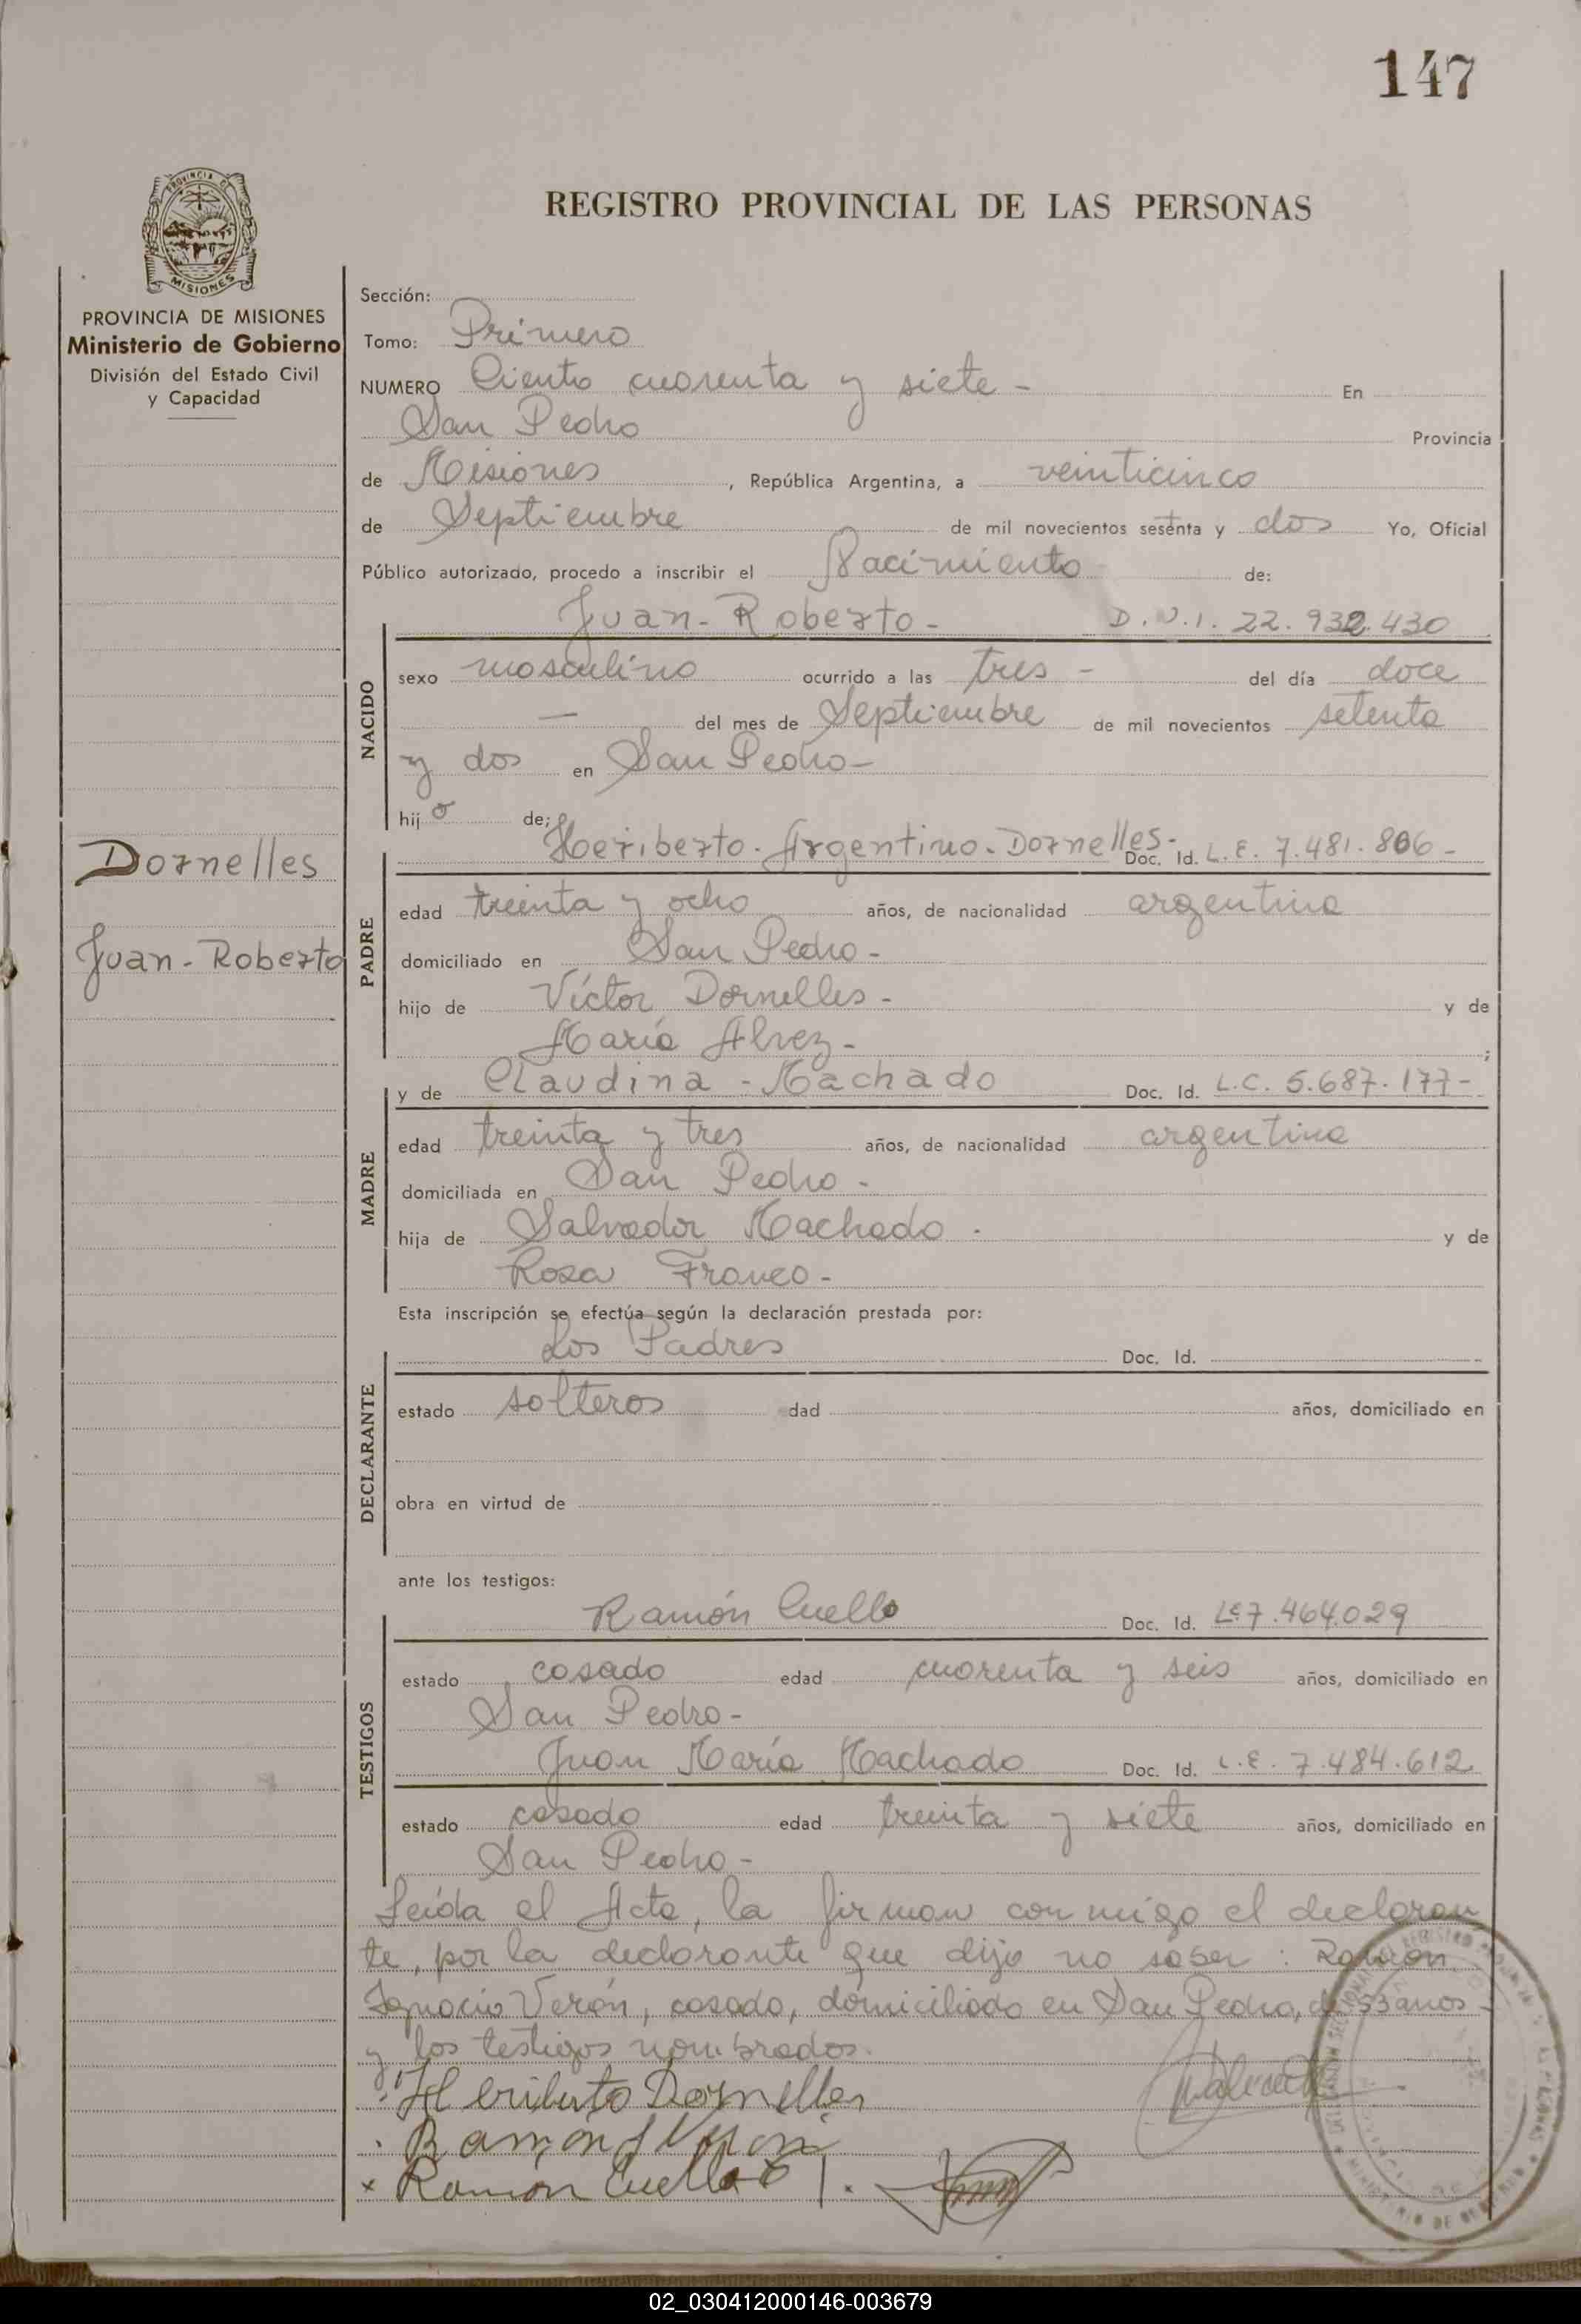 147
REGISTRO PROVINCIAL DE LAS PERSONAS
PROVINCIA DE MISIONES
Ministerio de Gobierno
División del Estado Civil
y Capacidad
Sección:
Tomo: Primero
NUMERO Ciento cuarenta y siete - En
San Pedro Provincia
de Misiones, República Argentina, a veinticinco
de Septiembre de mil novecientos sesenta y dos Yo, Oficial
Público autorizado, procedo a inscribir el Nacimiento de:
Juan - Roberto - D.N.I. 22.932.430
NACIDO
sexo masculino ocurrido a las tres - del día doce
— del mes de Septiembre de mil novecientos setenta
y dos en San Pedro -
hijo de;
Heriberto - Argentino - Dornelles - Doc. Id. L.E. 7.481.806 -
Dornelles
Juan - Roberto
PADRE
edad treinta y ocho años, de nacionalidad argentina
domiciliado en San Pedro -
hijo de Víctor Dornelles - y de
María Alvez - ;
y de Claudina - Machado Doc. Id. L.C. 5.687.177 -
MADRE
edad treinta y tres años, de nacionalidad argentina
domiciliada en San Pedro -
hija de Salvador Machado - y de
Rosa Franco -
Esta inscripción se efectúa según la declaración prestada por:
Los Padres Doc. Id.
DECLARANTE
estado solteros dad años, domiciliado en
obra en virtud de
ante los testigos:
Ramón Cuello Doc. Id. L.E. 7.464.029
TESTIGOS
estado casado edad cuarenta y seis años, domiciliado en
San Pedro -
Juan María Machado Doc. Id. L.E. 7.484.612
estado casado edad treinta y siete años, domiciliado en
San Pedro -
Leída el Acta, la firman conmigo el declaran
te, por la declarante que dijo no saber : Ramón
Ignacio Verón, casado, domiciliado en San Pedro, de 53 años -
y los testigos nombrados.
Heriberto Dornelles
Ramón
Ramón Cuello
02_030412000146-003679